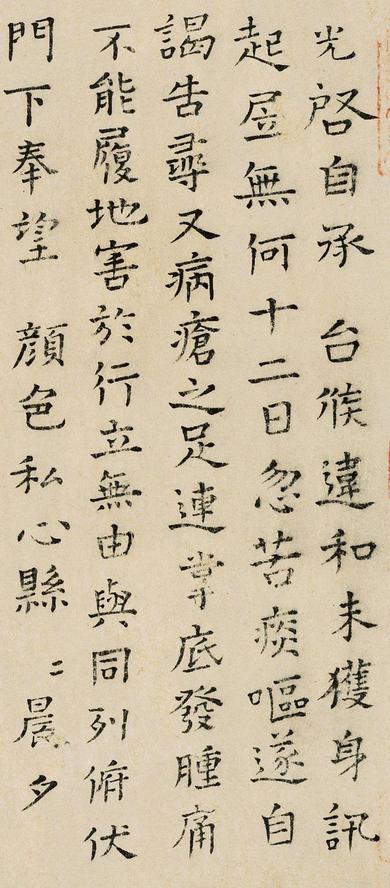 光啓自承 台候違和未獲身訊
起居無何十二日忽苦痰嘔遂自
謁告尋又病瘡之足連掌底發腫痛
不能履地害於行立無由與同列俯伏
門下奉望 顏色私心縣〻晨夕